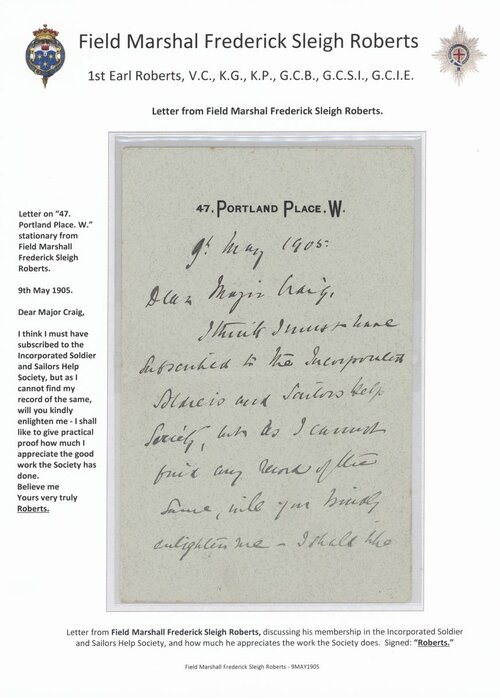 Field Marshal Frederick Sleigh Roberts
1st Earl Roberts, V.C., K.G., K.P., G.C.B., G.C.S.I., G.C.I.E.
Letter from Field Marshal Frederick Sleigh Roberts.
Letter on “47.
Portland Place. W.”
stationary from
Field Marshall
Frederick Sleigh
Roberts.
9th May 1905.
Dear Major Craig,
I think I must have
subscribed to the
Incorporated Soldier
and Sailors Help
Society, but as I
cannot find my
record of the same,
will you kindly
enlighten me - I shall
like to give practical
proof how much I
appreciate the good
work the Society has
done.
Believe me
Yours very truly
Roberts.
47, PORTLAND PLACE. W.
9th May 1905.
Dear Major Craig,
I think I must have
subscribed to the Incorporated
Soldiers and Sailors Help
Society, but as I cannot
find any record of the
same, will you kindly
enlighten me - I should like
Letter from Field Marshall Frederick Sleigh Roberts, discussing his membership in the Incorporated Soldier
and Sailors Help Society, and how much he appreciates the work the Society does. Signed: “Roberts.”
Field Marshall Frederick Sleigh Roberts - 9MAY1905